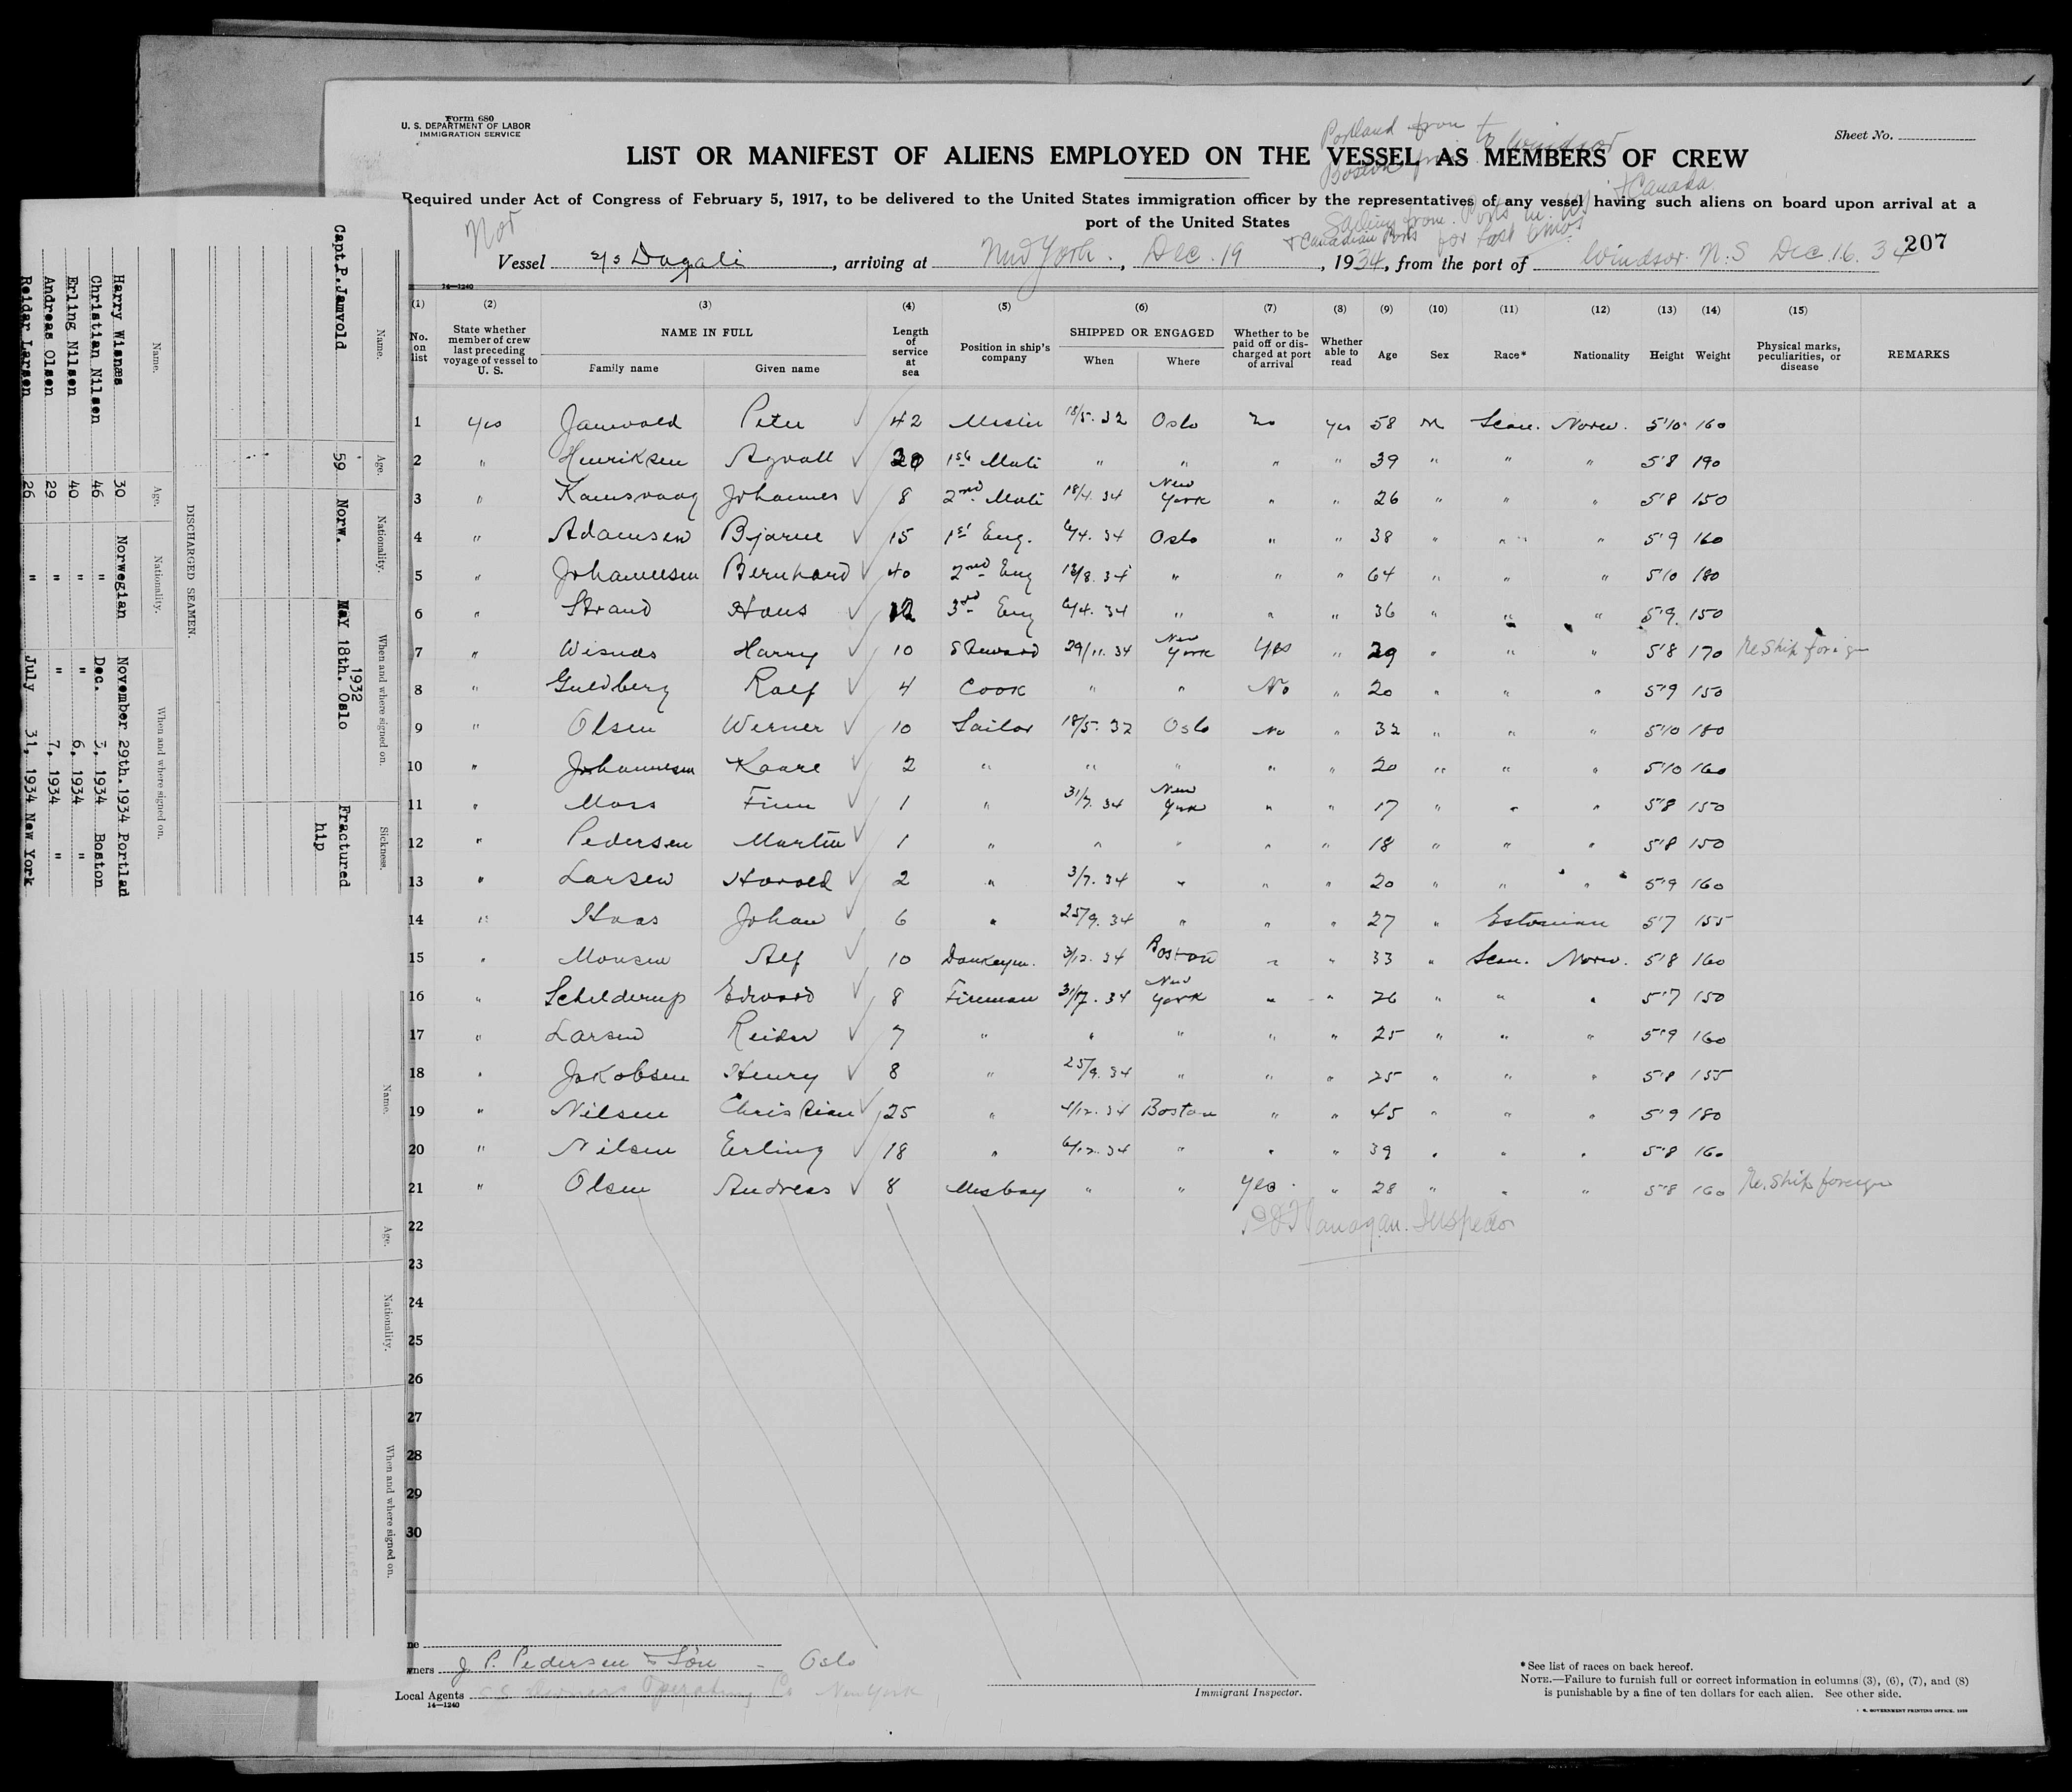 Form 680
U. S. DEPARTMENT OF LABOR
IMMIGRATION SERVICE
Sheet No.
Portland from to Windsor
Boston from
LIST OR MANIFEST OF ALIENS EMPLOYED ON THE VESSEL AS MEMBERS OF CREW
& Canada.
Required under Act of Congress of February 5, 1917, to be delivered to the United States immigration officer by the representatives of any vessel having such aliens on board upon arrival at a
port of the United States
Sailing from Ports in US
& Canadian Ports for last 6 mos
207
Nor
Vessel s/s Dagali, arriving at New York., Dec. 19, 1934, from the port of Windsor. N.S Dec. 16. 34
14—1240
(1) (2) (3) (4) (5) (6) (7) (8) (9) (10) (11) (12) (13) (14) (15)
No. on list
State whether member of crew last preceding voyage of vessel to U. S.
NAME IN FULL
Family name Given name
Length of service at sea
Position in ship's company
SHIPPED OR ENGAGED
When Where
Whether to be paid off or discharged at port of arrival
Whether able to read
Age Sex Race* Nationality Height Weight
Physical marks, peculiarities, or disease
REMARKS
1 Yes Jamvold Peter 42 Master 18/5. 32 Oslo no yes 58 M Scan. Norw. 5'10 160
2 " Henriksen 20 1st Mate " " " " 39 " " " 5'8 190
3 " Johannes 8 2nd Mate 18/4. 34 New York " " 26 " " " 5'8 150
4 " Adamsen Bjarne 15 1st Eng. 6/4. 34 Oslo " " 38 " " " 5'9 160
5 " Johannesen Bernhard 40 2nd Eng 18/8. 34 " " " 64 " " " 5'10 180
6 " Strand Hans 12 3rd Eng 6/4. 34 " " " 36 " " " 5'9 150
7 " Wisnæs Harry 10 Steward 29/11. 34 New York Yes " 29 " " " 5'8 170 Re Ship foreign
8 " Guldberg Ralf 4 Cook " " No " 20 " " " 5'9 150
9 " Olsen Werner 10 Sailor 18/5. 32 Oslo No " 32 " " " 5'10 180
10 " Johannesen Kaare 2 " " " " " 20 " " " 5'10 160
11 " Moss Finn 1 " 31/7. 34 New York " " 17 " " " 5'8 150
12 " Pedersen Martin 1 " " " " " 18 " " " 5'8 150
13 " Larsen Harold 2 " 3/7. 34 " " " 20 " " " 5'9 160
14 " Haas Johan 6 " 25/9. 34 " " " 27 " Estonian 5'7 155
15 " Monsen Alf 10 Donkeym. 3/12. 34 Boston " " 33 " Scan. Norw. 5'8 160
16 " Schelderup Edward 8 Fireman 31/7. 34 New York " " 26 " " " 5'7 150
17 " Larsen Reidar 7 " " " " " 25 " " " 5'9 160
18 " Jakobsen Henry 8 " 25/9. 34 " " " 25 " " " 5'8 155
19 " Nilsen Christian 25 " /12. 34 Boston " " 45 " " " 5'9 180
20 " Nilsen Erling 18 " 6/12. 34 " " " 39 " " " 5'8 160
21 " Olsen Andreas 8 Messboy " " Yes " 28 " " " 5'8 160 Re. Ship foreign
22
Flanagan. Inspector
23
24
25
26
27
28
29
30
wners J. P. Pedersen & Søn - Oslo
Local Agents Operating Co New York
14—1240
Immigrant Inspector.
*See list of races on back hereof.
NOTE.—Failure to furnish full or correct information in columns (3), (6), (7), and (8)
is punishable by a fine of ten dollars for each alien. See other side.
Name. Age. Nationality. When and where signed on. Sickness.
Capt.P.Jamvold 59 Norw. MAY 18th. 1932 Oslo Fractured hip
DISCHARGED SEAMEN.
Name. Age. Nationality. When and where signed on.
Harry Wisnæs 30 Norwegian November 29th.1934 Portlad
Christian Nilsen 46 " Dec. 3, 1934 Boston
Erling Nilsen 40 " " 6, 1934 "
Andreas Olsen 29 " " 7, 1934 "
Reidar Larsen 26 " July 31, 1934 New York
Name. Age. Nationality. When and where signed on.